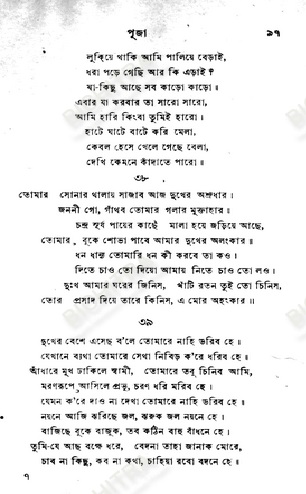 পূজা ৯৭
লুকিয়ে থাকি আমি পালিয়ে বেড়াই,
ধরা পড়ে গেছি আর কি এড়াই ?
যা-কিছু আছে সব কাড়ো কাড়ো ॥
এবার যা করবার তা সারো সারো,
আমি হারি কিংবা তুমিই হারো ।
হাটে ঘাটে বাটে করি মেলা,
কেবল হেসে খেলে গেছে বেলা,
দেখি কেমনে কাঁদাতে পারো ॥
৩৮
তোমার সোনার থালায় সাজাব আজ দুখের অশ্রুধার ।
জননী গো, গাঁথব তোমার গলার মুক্তাহার ॥
চন্দ্র সূর্য পায়ের কাছে মালা হয়ে জড়িয়ে আছে,
তোমার বুকে শোভা পাবে আমার দুখের অলংকার ॥
ধন ধান্য তোমারি ধন কী করবে তা কও ।
দিতে চাও তো দিয়ো আমায় নিতে চাও তো লও ।
দুঃখ আমার ঘরের জিনিস, খাঁটি রতন তুই তো চিনিস,
তোর প্রসাদ দিয়ে তারে কিনিস, এ মোর অহংকার ॥
৩৯
দুখের বেশে এসেছ ব'লে তোমারে নাহি ডরিব হে ।
যেখানে ব্যথা তোমারে সেথা নিবিড় ক'রে ধরিব হে ॥
আঁধারে মুখ ঢাকিলে স্বামী, তোমারে তবু চিনিব আমি,
মরণরূপে আসিলে প্রভু, চরণ ধরি মরিব হে ।
যেমন ক'রে দাও না দেখা তোমারে নাহি ডরিব হে ॥
নয়নে আজি ঝরিছে জল, ঝরুক জল নয়নে হে ।
বাজিছে বুকে বাজুক, তব কঠিন বাহু বাঁধনে হে ।
তুমি-যে আছ বক্ষে ধরে, বেদনা তাহা জানাক মোরে,
চাব না কিছু, কব না কথা, চাহিয়া রবো বদনে হে ॥
৭